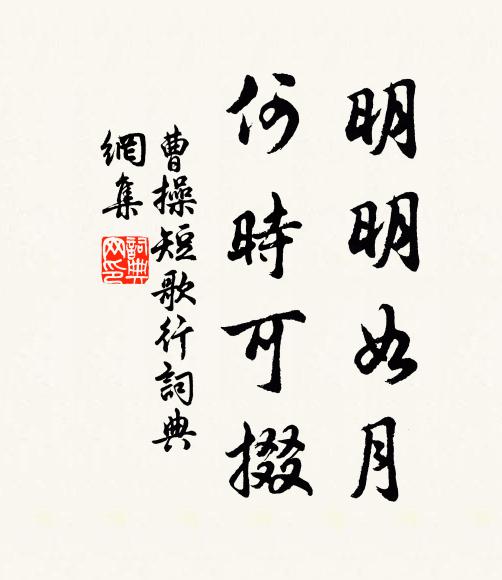 明明如月
何時可掇
曹操短歌行詞典
網集
詞典
网印